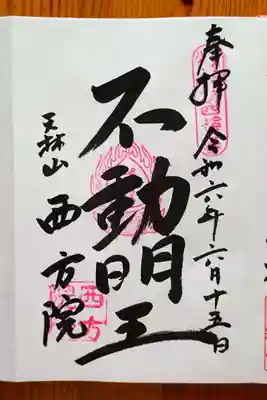 奉拝 令和六年六月十五日
不動明王
天林山 西方院
西方